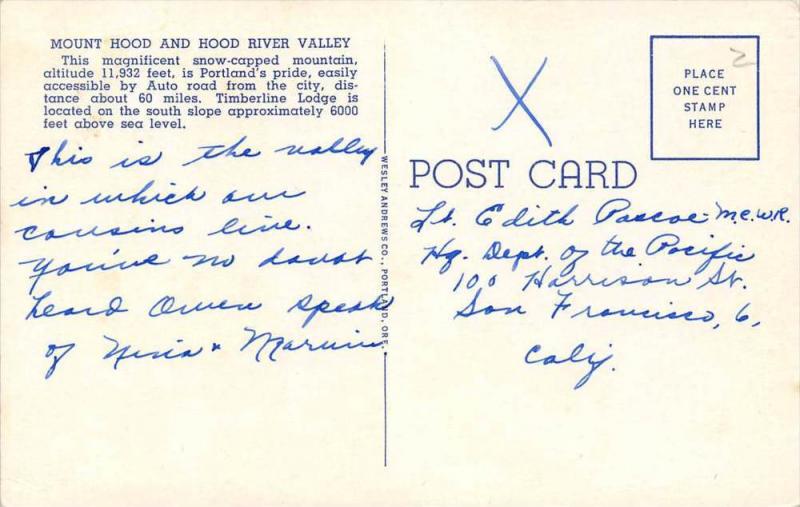 MOUNT HOOD AND HOOD RIVER VALLEY
This magnificent snow-capped mountain,
altitude 11,932 feet, is Portland's pride, easily
accessible by Auto road from the city, dis-
tance about 60 miles. Timberline Lodge is
located on the south slope approximately 6000
feet above sea level.
This is the valley
in which our
cousins live.
You've no doubt
heard Owen speak
of & Marvin
WESLEY ANDREWS CO., PORTLAND, ORE.
X
2
PLACE
ONE CENT
STAMP
HERE
POST CARD
Lt. Edith Pascoe - M.C.W.R.
Hq. Dept. of the Pacific
100 Harrison St.
San Francisco, 6,
Calif.